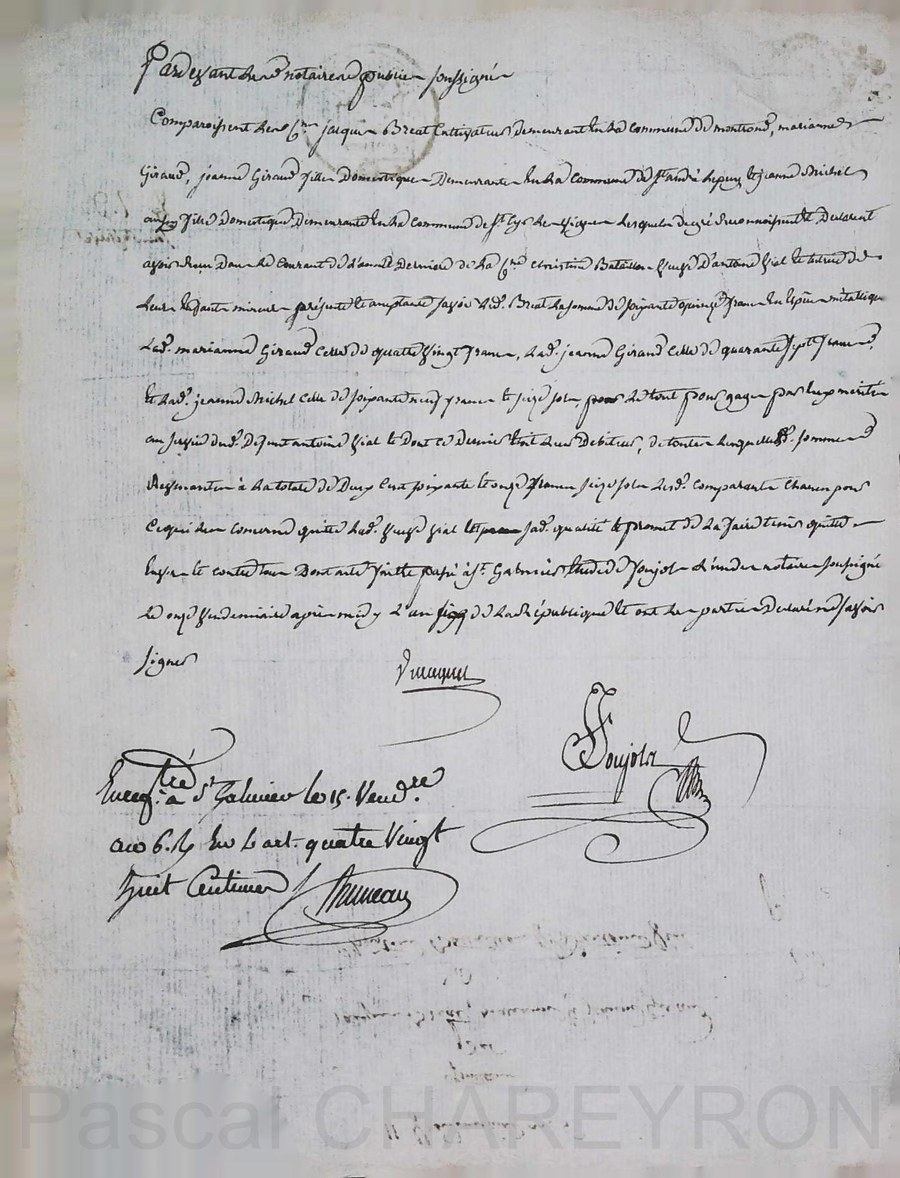 Pardevant le no notaire public soussigné
Comparoissent les Cns jacques Breat Cultivateur demeurant en la commune de montrond, marianne
Giraud, jeanne Giraud fille Domestique Demeurante en la commune de st andré le puy et jeanne Michel
aussy fille Domestique Demeurante en la commune de st Cyr les vignes lesquels de gré reconnoissent et Declarent
avoir reçu dans le courant de l'année Derniere de la Cne christine Bataillon veuve D'antoine vial et tutrice de
leurs Enfants mineurs présente et acceptante savoir led. Breat la somme de soixante quinze francs En Espèce métallique
Lad. marianne Giraud celle de quatre vingt francs, Lad. jeanne Giraud celle de quarante sept francs
et Lad. jeanne Michel celle de soixante neuf francs et seize sols le tout pour gages par Eux mérités
au service dud. Defunt antoine vial et Dont ce Dernier Etoit leur Debiteur, de toutes lesquelles d. sommes
Revenantes à la totale de Deux Cent soixante et onze francs seize sols Lesd. comparants chacun pour
ce qui les concerne quitte Lad. veuve vial sad. qualité et promet de la faire tenir quitte
Envers et contre tous Dont acte fait et passé à st. Galmier Etude de Soujol l'un des notaires soussigné
Le onze vendemiaire après midy L'an six de la République et ont les parties Declaré ne savoir
signer
Soujol
Enregtré à St Galmier le 15. Vendre
an 6. quatre Vingt
huit Centimes
Pascal CHAREYRON